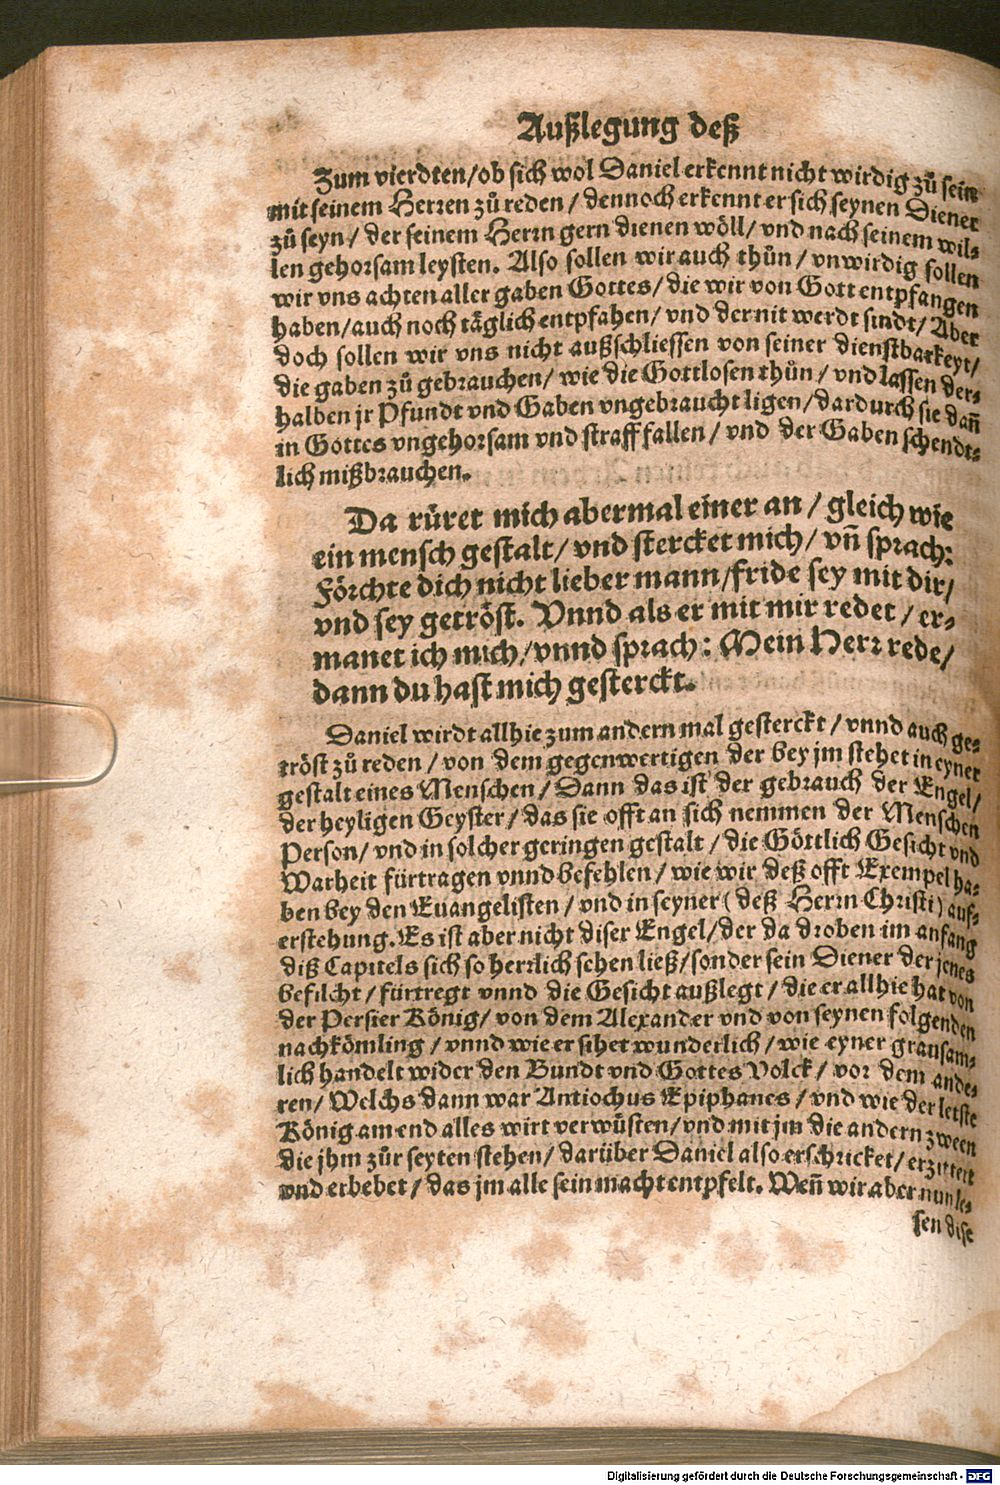 Außlegung deß
Zum vierdten/ob sich wol Daniel erkennt nicht wirdig zů sein
mit seinem Herren zů reden/ dennoch erkennt er sich seynen Diener
zů seyn/ der seinem Herrn gern dienen wöll/ vnd nach seinem wil⸗
len gehorsam leysten. Also sollen wir auch thůn/ vnwirdig sollen
wir vns achten aller gaben Gottes/ die wir von Gott entpfangen
haben/auch noch täglich entpfahen/ vnd der nit werdt sindt/ Aber
doch sollen wir vns nicht außschliessen von seiner dienstbarkeyt/
die gaben zů gebrauchen/ wie die Gottlosen thůn/ vnd lassen der⸗
halben jr Pfundt vnd Gaben vngebraucht ligen/dardurch sie dañ
in Gottes vngehorsam vnd straff fallen/ vnd der Gaben schendt⸗
lich mißbrauchen.
Da rüret mich abermal einer an/ gleich wie
ein mensch gestalt/ vnd stercket mich/ vñ sprach:
Förchte dich nicht lieber mann/fride sey mit dir/
vnd sey getröst. Vnnd als er mit mir redet/ er⸗
manet ich mich/vnnd sprach: Mein Herr rede/
dann du hast mich gesterckt.
Daniel wirdt allhie zum andern mal gesterckt/ vnnd auch ge⸗
tröst zů reden/ von dem gegenwertigen der bey jm stehet in eyner
gestalt eines Menschen/ Dann das ist der gebrauch der Engel/
der heyligen Geyster/ das sie offt an sich nemmen der Menschen
Person/ vnd in solcher geringen gestalt/ die Göttlich Gesicht vnd
Warheit fürtragen vnnd befehlen/ wie wir deß offt Exempel ha⸗
ben bey den Euangelisten/ vnd in seyner (deß Herrn Christi) auf⸗
erstehung. Es ist aber nicht diser Engel/der da droben im anfang
diß Capitels sich so herrlich sehen ließ/sonder sein Diener der jenes
befilcht/ fürtregt vnnd die Gesicht außlegt/ die er allhie hat von
der Persier König/ von dem Alexander vnd von seynen folgenden
nachkömling/ vnnd wie er sihet wunderlich/ wie eyner grausam⸗
lich handelt wider den Bundt vnd Gottes Volck/ vor dem ande⸗
ren/ Welchs dann war Antiochus Epiphanes/ vnd wie der letste
König am end alles wirt verwüsten/ vnd mit jm die andern zween
die jhm zůr seyten stehen/ darüber Daniel also erschricket/ erzittert
vnd erbebet/ das jm alle sein macht entpfelt. Weñ wir aber nun le⸗
sen dise
Digitalisierung gefördert durch die Deutsche Forschungsgemeinschaft - DFG